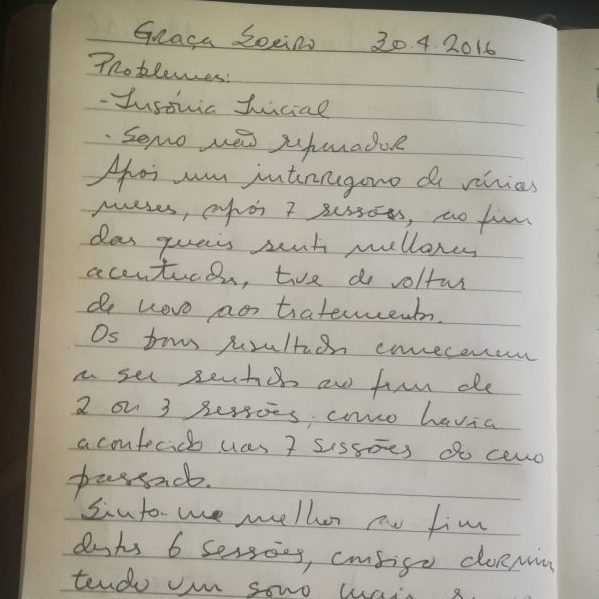 Graça Soeiro 30.4.2016
Problemas:
- Insónia Inicial
- Sono não reparador
Após um interregono de vários
meses, após 7 sessões, ao fim
das quais senti melhoras
acentuadas, tive de voltar
de novo aos tratamentos.
Os bons resultados começaram
a ser sentidos ao fim de
2 ou 3 sessões, como havia
acontecido nas 7 sessões do ano
passado.
Sinto-me melhor ao fim
destas 6 sessões, consigo dormir
tendo um sono mais